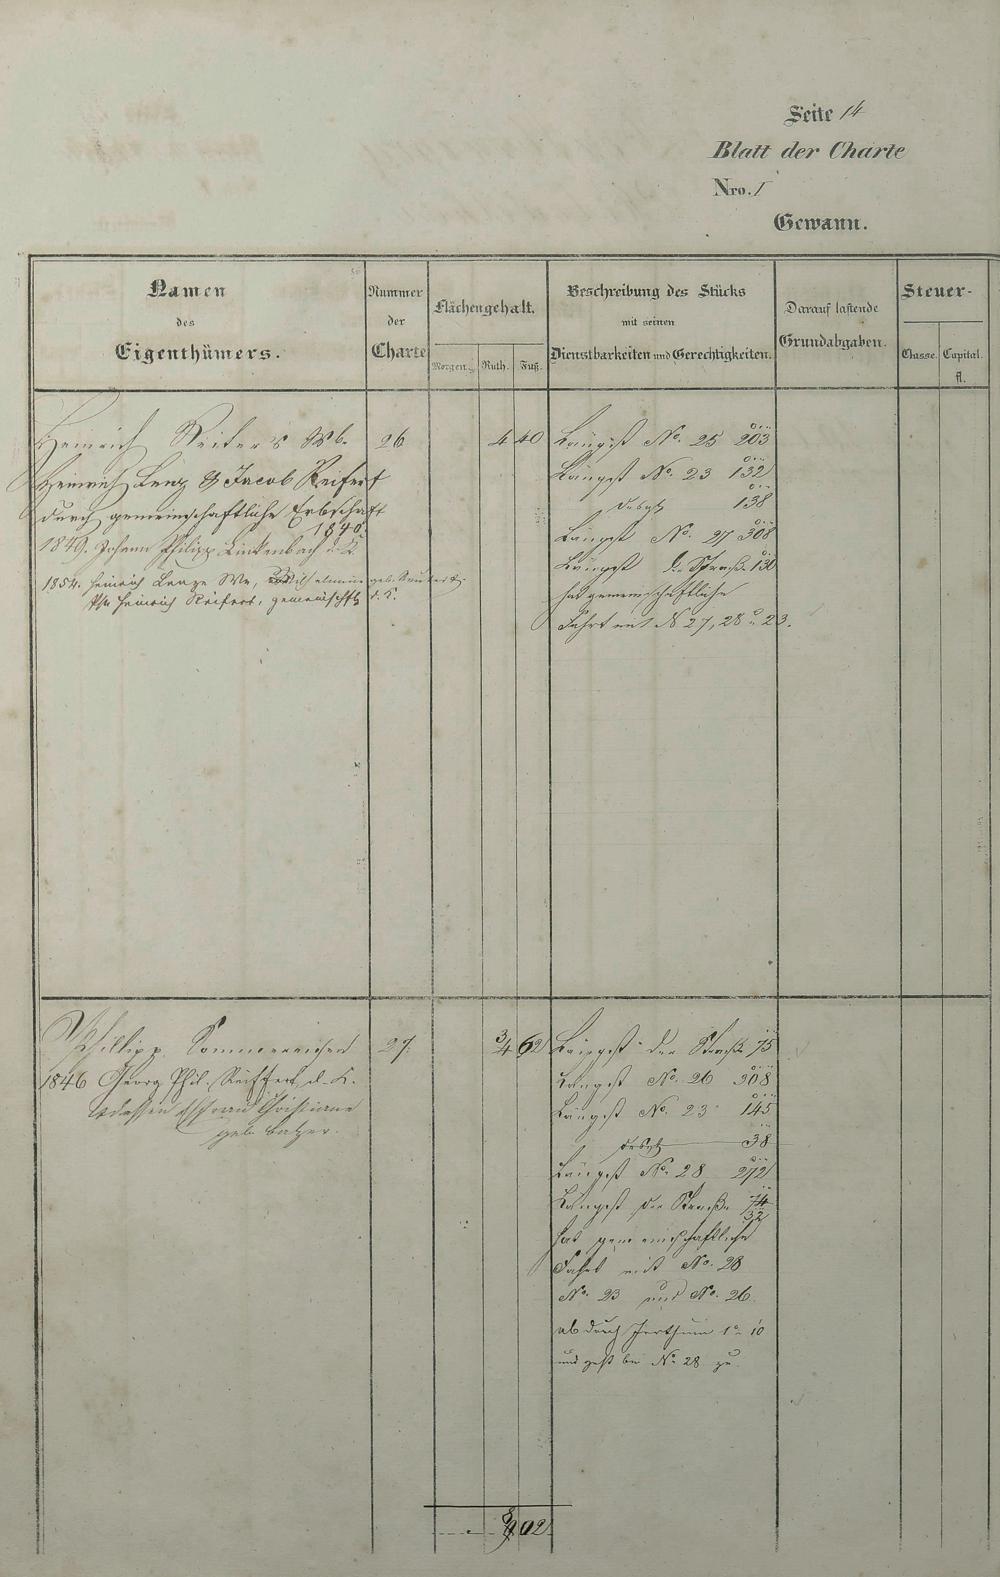 Seite 14
Blatt der Charte
Nro. I
Gewann.
Namen
des
Eigenthümers.
Nummer
der
Charte
Flächengehalt.
Morgen. Ruth. Fuß.
Beschreibung des Stücks
mit seinen
Dienstbarkeiten und Gerechtigkeiten.
Darauf lastende
Grundabgaben.
Steuer-
Classe. Capital.
fl.
Heinrich Reifer's Wb. 26 4 40 Längst No. 25 203
Heinrich Lenz & Jacob Reifert Längst No. 23 132
durch gemeinschaftliche Erbschaft 138
1840. Längst No. 27 308
1849. Johann Philipp Linkenbach d. K. Längst d. Straße 130
1854. Heinrich Lenze We, geb.
Heinrich Reifert, gemeinschftl d. K. hat gemeinschaftliche
Fahrt mit N 27, 28 u. 23.
Phillipp 27. 3/4 62 Längst der Straße 75
1846 Georg Phil. Reiffert d. K. Längst No. 26 308
dessen Ehefrau Christiane Längst No. 23 145
geb. Balzer. 38
Längst No. 28 272
Längst die Straße 74
32
hat gemeinschaftliche
Fahrt mit No. 28
No. 23 und No. 26
ab durch Irrthum 1° 10
und geht bei No. 28 zu.
02